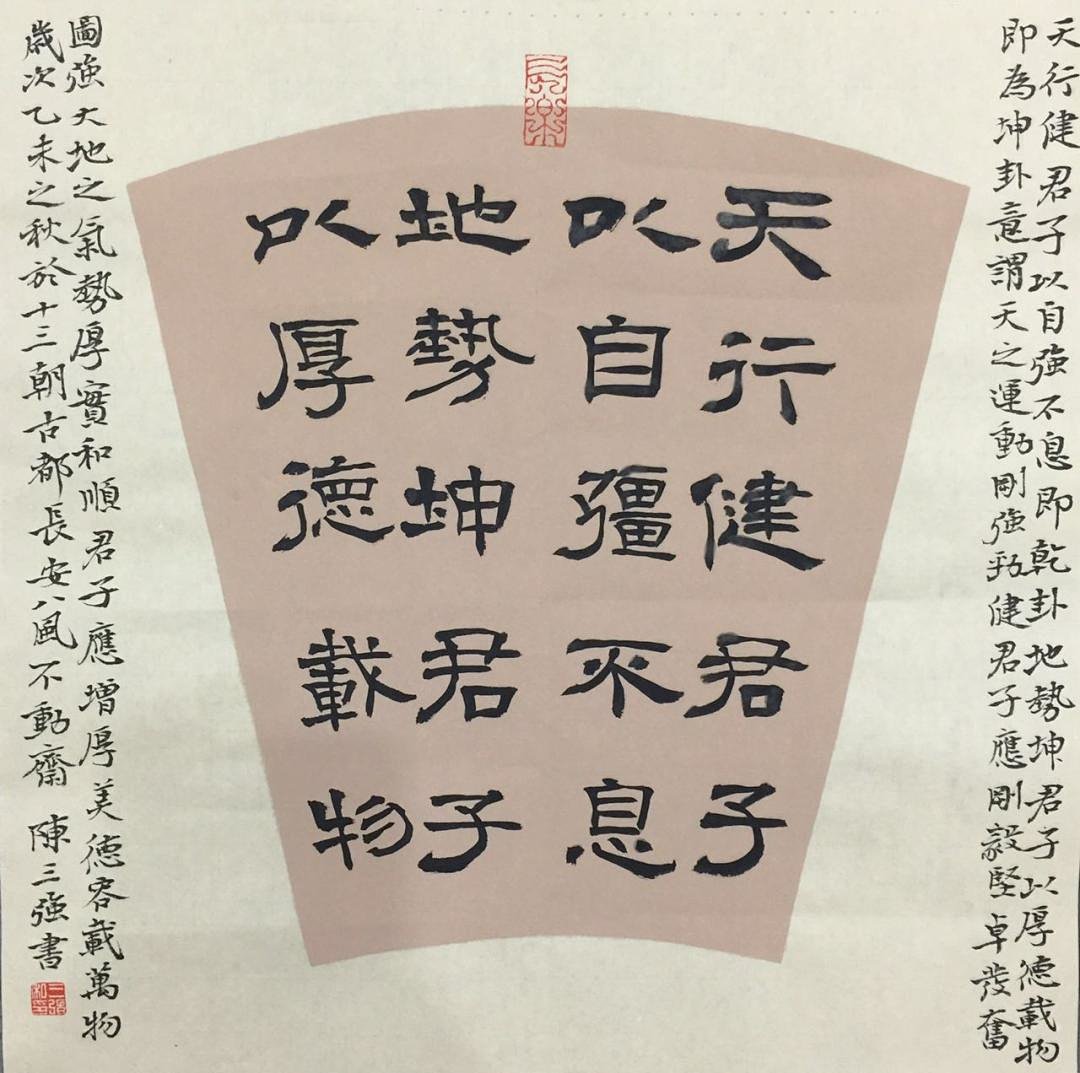 長樂
天行健君子
以自彊不息
地勢坤君子
以厚德載物
天行健君子以自強不息即乾卦地勢坤君子以厚德載物
即為坤卦意謂天之運動剛強勁健君子應剛毅堅卓發奮
圖強大地之氣勢厚實和順君子應增厚美德容載萬物
歲次乙未之秋於十三朝古都長安八風不動齋 陳三強書